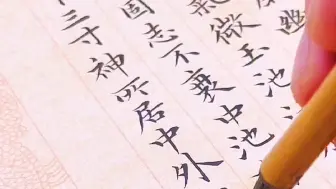 微玉池
固志不衰中池
三寸神所居中外